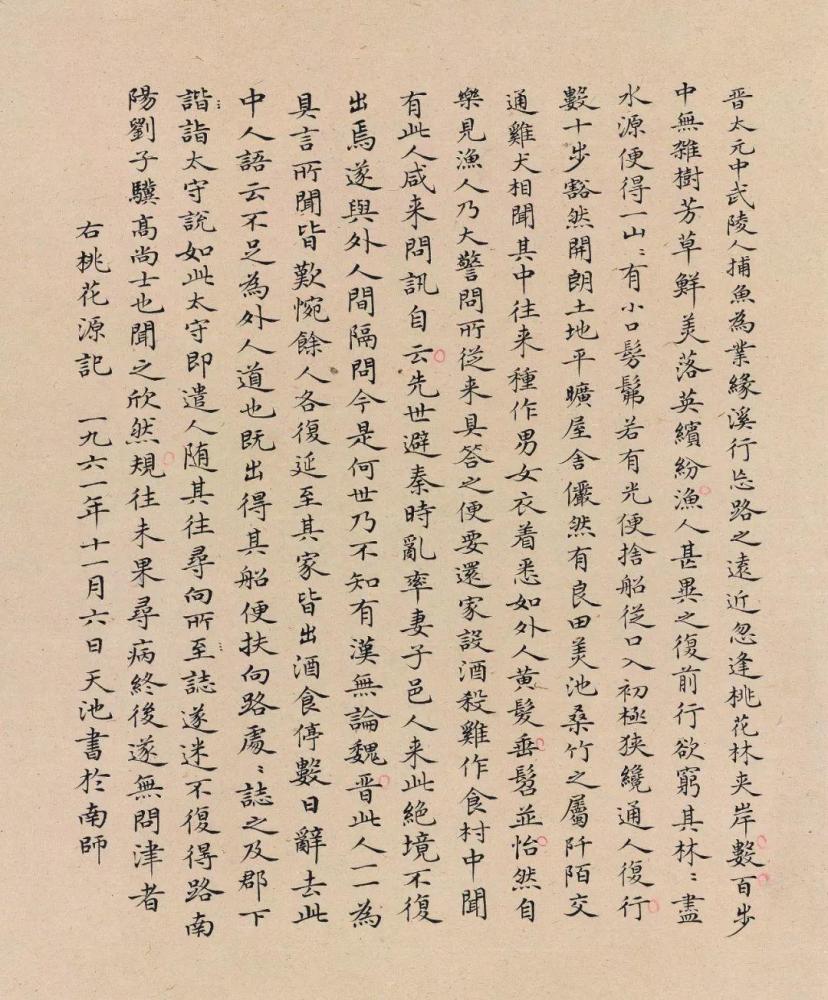 晋太元中武陵人捕魚為業緣溪行忘路之遠近忽逢桃花林夹岸數百步
中無雜樹芳草鮮美落英繽紛漁人甚異之復前行欲窮其林〻盡
水源便得一山〻有小口髣髴若有光便捨船從口入初極狹纔通人復行
數十步豁然開朗土地平曠屋舍儼然有良田美池桑竹之屬阡陌交
通雞犬相聞其中往来種作男女衣着悉如外人黄髮垂髫並怡然自
樂見漁人乃大驚問所從来具答之便要還家設酒殺雞作食村中聞
有此人咸来問訊自云先世避秦時亂率妻子邑人来此絶境不復
出焉遂與外人間隔問今是何世乃不知有漢無論魏晋此人一一為
具言所聞皆歎惋餘人各復延至其家皆出酒食停數日辭去此
中人語云不足為外人道也既出得其船便扶向路處〻誌之及郡下
諧詣太守說如此太守即遣人随其往尋向所至誌遂迷不復得路南
陽劉子驥髙尚士也聞之欣然規往未果尋病終後遂無問津者
右桃花源記 一九六一年十一月六日天池書於南師